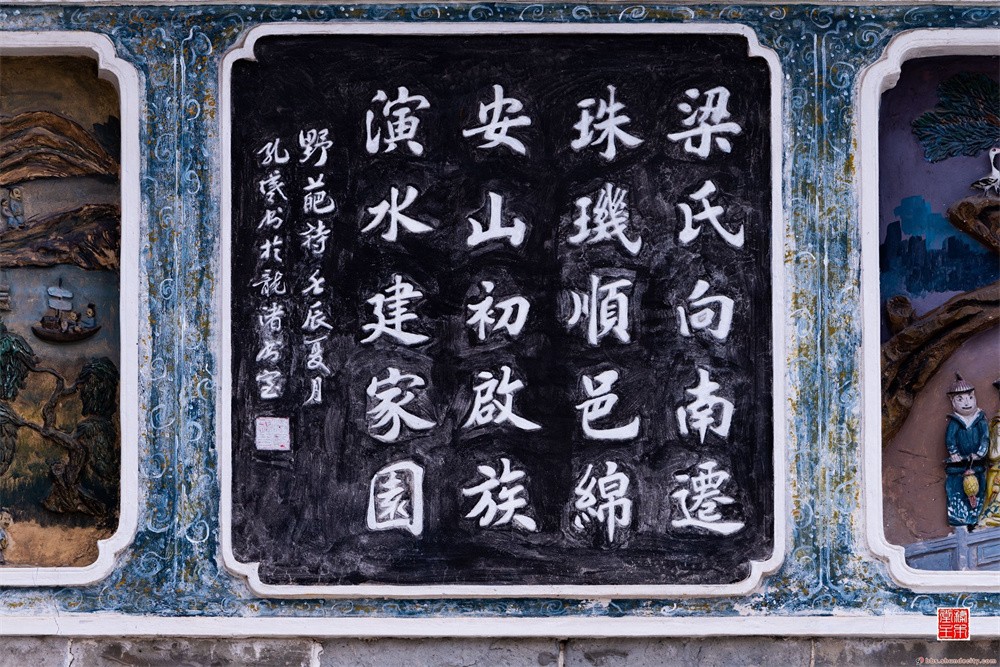 梁氏向南遷
珠璣順邑綿
安山初啟族
演水建家園
野葩詩壬辰夏月
孔龑书於龍渚书室
bbs.shundecity.com